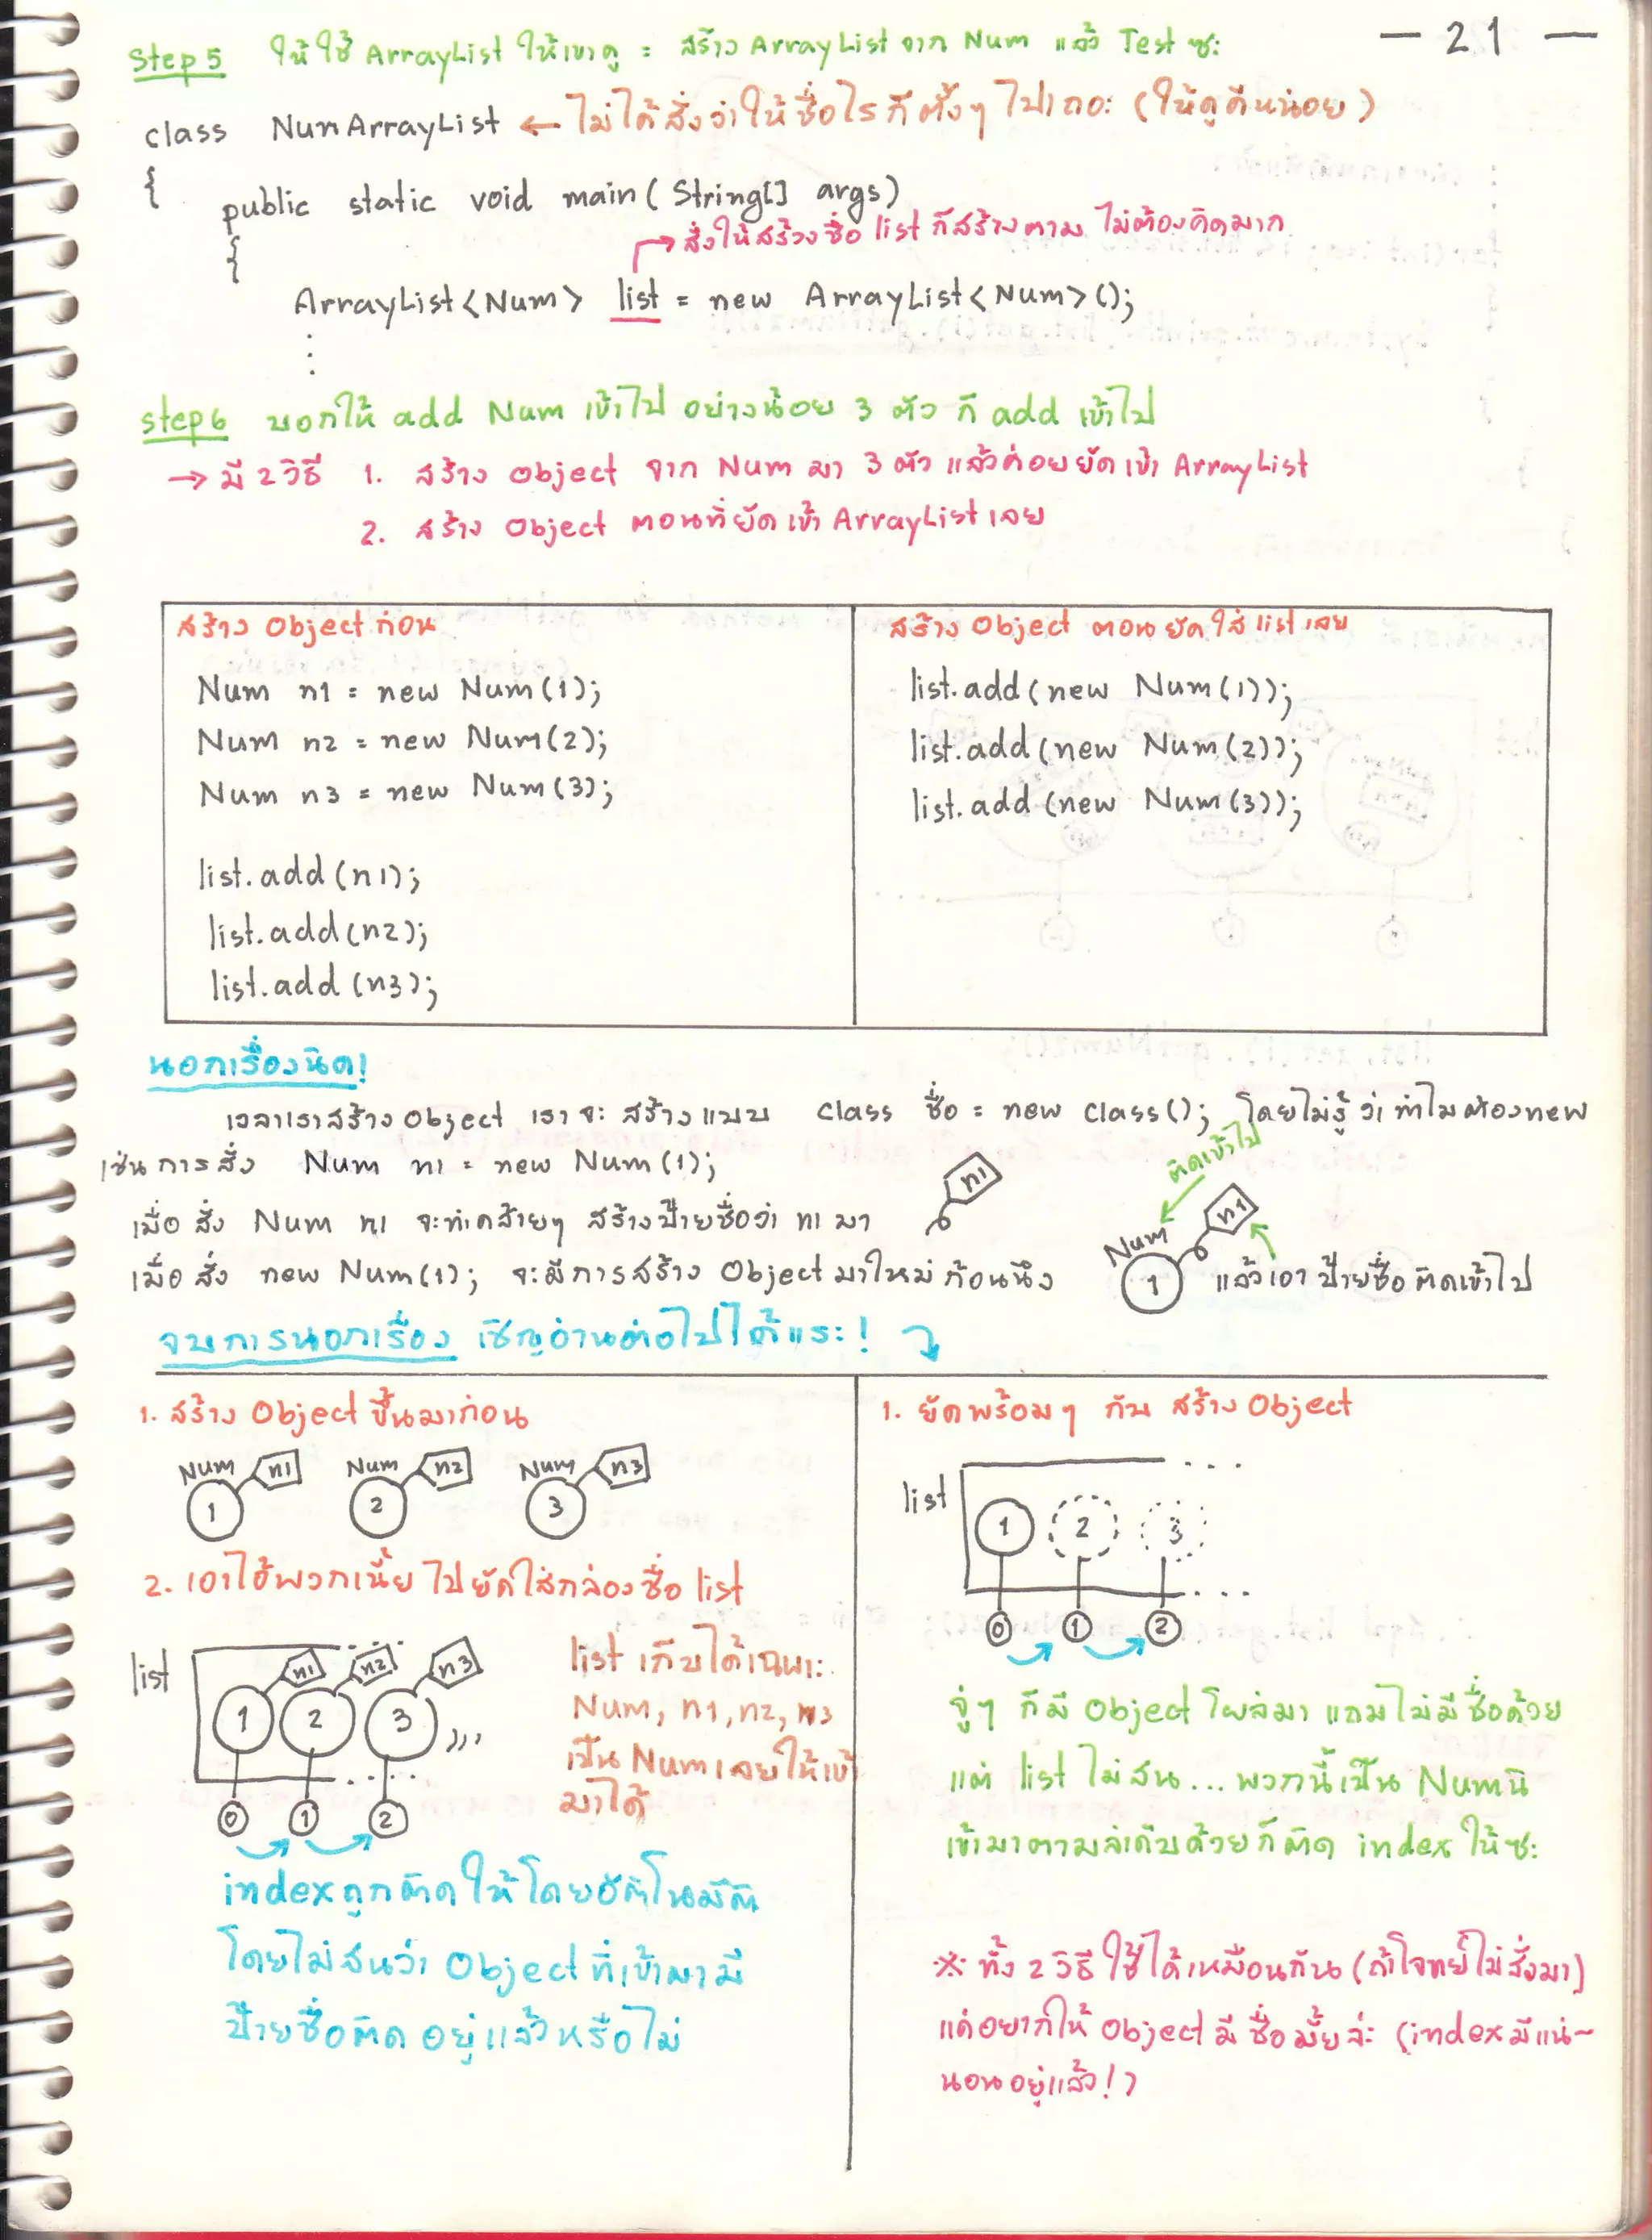 — 21 —
Step 5 ให้ใช้ ArrayList ให้เขาดู = สร้าง ArrayList จาก Num แล้ว Test ซะ
class NumArrayList ← ไม่ได้สั่งว่าให้ชื่อไรก็ตั้งๆ ไปเถอะ (ให้ดูดีหน่อย)
{
public static void main( String[] args)
{
→ สั่งให้สร้างชื่อ list ก็สร้างตาม ไม่ต้องคิดมาก
ArrayList<Num> list = new ArrayList<Num>();
⋮
step 6 บอกให้ add Num เข้าไป อย่างน้อย 3 ตัว ก็ add เข้าไป
→ มี 2 วิธี 1. สร้าง Object จาก Num มา 3 ตัว แล้วค่อยยัดเข้า ArrayList
2. สร้าง Object ตอนที่ยัดเข้า ArrayList เลย
สร้าง Object ก่อน
Num n1 = new Num(1);
Num n2 = new Num(2);
Num n3 = new Num(3);
list.add(n1);
list.add(n2);
list.add(n3);
สร้าง Object ตอนยัดใส่ list เลย
list.add(new Num(1));
list.add(new Num(2));
list.add(new Num(3));
นอกเรื่องนิด!
เวลาเราสร้าง Object เราจะ สร้างแบบ Class ชื่อ = new Class(); โดยไม่รู้ว่าทำไมต้อง new
เช่นการสั่ง Num n1 = new Num(1);
เมื่อ สั่ง Num n1 จะทำคล้ายๆ สร้างป้ายชื่อว่า n1 มา
n1
เมื่อ สั่ง new Num(1); จะมีการสร้าง Object มาใหม่ก้อนนึง
ติดเข้าไป
Num n1
1
แล้วเอา ป้ายชื่อ ติดเข้าไป
จบการนอกเรื่อง เชิญอ่านต่อไปได้แระ!
1. สร้าง Object ขึ้นมาก่อน
Num n1 Num n2 Num n3
1 2 3
2. เอาไอ้พวกเนี้ย ไปยัดใส่กล่องชื่อ list
list
n1 n2 n3
1 2 3
0 1 2
list เก็บได้เฉพาะ
Num, n1, n2, n3
เป็น Num เลยให้เข้า
มาได้
index ถูกติดให้โดยอัตโนมัติ
โดยไม่สนว่า Object ที่เข้ามามี
ป้ายชื่อติด อยู่แล้วหรือไม่
1. ยัดพร้อมๆ กับ สร้าง Object
list
1 2 3
0 1 2
จู่ๆ ก็มี Object โผล่มา แถมไม่มีชื่อด้วย
แต่ list ไม่สน... พวกนี้เป็น Num นิ
เข้ามาตามลำดับด้วยก็ติด index ให้ซะ
※ ทั้ง 2 วิธี ใช้ได้เหมือนกัน (ถ้าโจทย์ไม่สั่งมา)
แค่อยากให้ Object มี ชื่อมั้ยล่ะ (index มีแน่~
นอนอยู่แล้ว!)